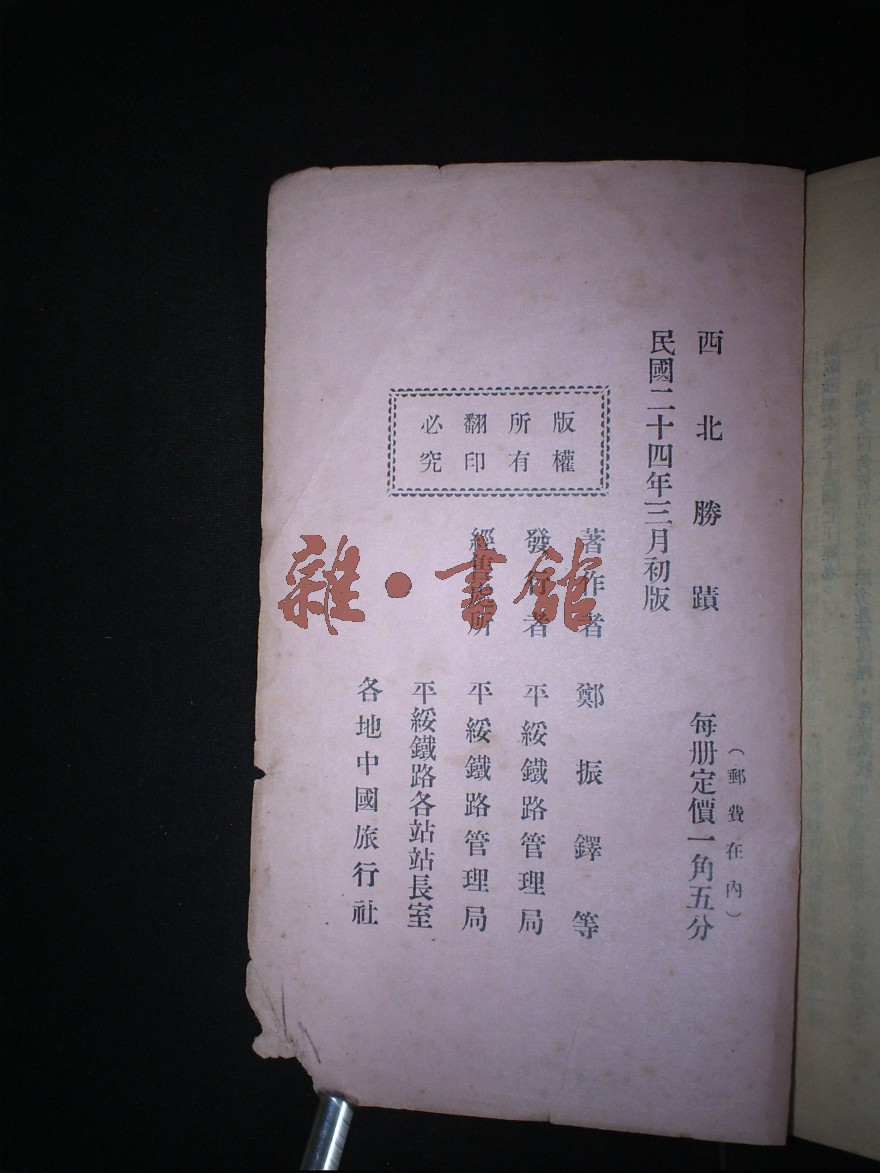 西北勝蹟
每册定價一角五分
（郵費在內）
民國二十四年三月初版
版權
所有
翻印
必究
著作者 鄭振鐸等
發行者 平綏鐵路管理局
經售處所 平綏鐵路管理局
平綏鐵路各站站長室
各地中國旅行社
雜·書館